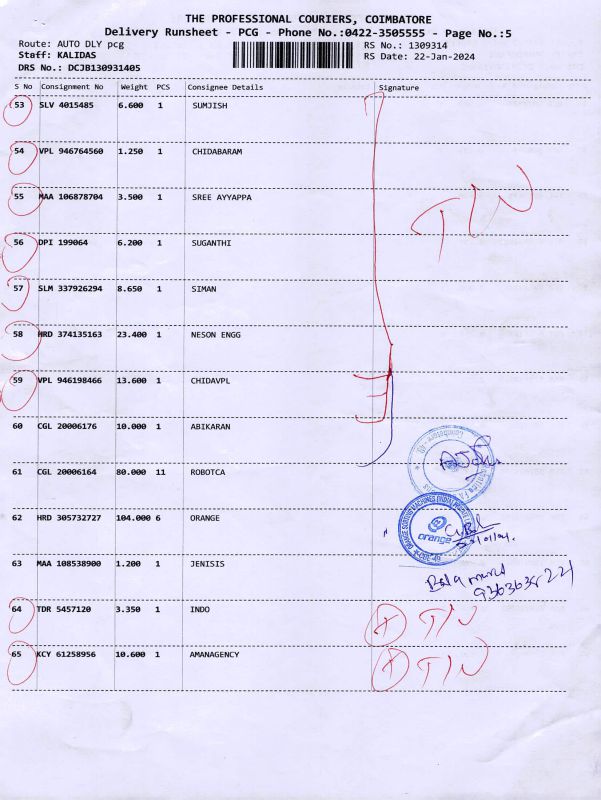 THE PROFESSIONAL COURIERS, COIMBATORE
Delivery Runsheet - PCG - Phone No.:0422-3505555 - Page No.:5
Route: AUTO DLY pcg
RS No.: 1309314
Staff: KALIDAS
RS Date: 22-Jan-2024
DRS No.: DCJB130931405
S No Consignment No Weight PCS Consignee Details Signature
53 SLV 4015485 6.600 1 SUMJISH
54 VPL 946764560 1.250 1 CHIDABARAM
55 MAA 106878704 3.500 1 SREE AYYAPPA
T/N
56 DPI 199064 6.200 1 SUGANTHI
57 SLM 337926294 8.650 1 SIMAN
58 HRD 374135163 23.400 1 NESON ENGG
59 VPL 946198466 13.600 1 CHIDAVPL
60 CGL 20006176 10.000 1 ABIKARAN
61 CGL 20006164 80.000 11 ROBOTCA
62 HRD 305732727 104.000 6 ORANGE
orange
63 MAA 108538900 1.200 1 JENISIS
64 TDR 5457120 3.350 1 INDO T/N
65 KCY 61258956 10.600 1 AMANAGENCY T/N